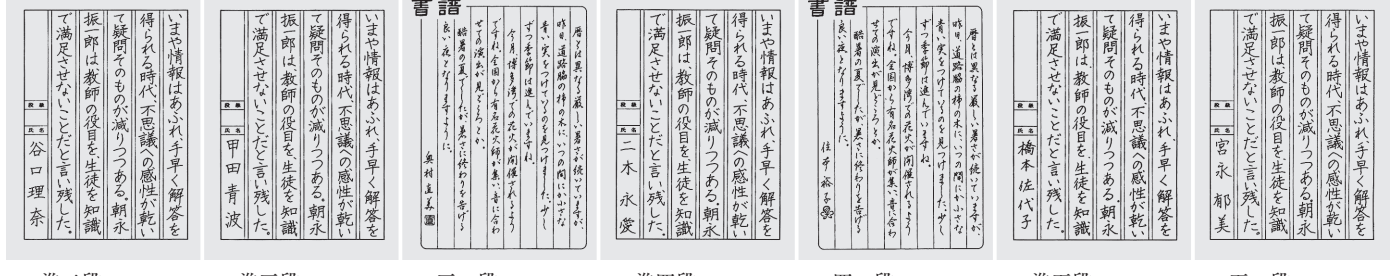 いまや情報はあふれ、手早く解答を
得られる時代、不思議への感性が乾い
て疑問そのものが減りつつある。朝永
振一郎は教師の役目を、生徒を知識
で満足させないことだと言い残した。
段級
氏名
宮永郁美
いまや情報はあふれ、手早く解答を
得られる時代、不思議への感性が乾い
て疑問そのものが減りつつある。朝永
振一郎は教師の役目を、生徒を知識
で満足させないことだと言い残した。
段級
氏名
橋本佐代子
書譜
暦とは異なる厳しい暑さが続いていますが、
昨日、道路脇の柿の木に、いつの間にか小さな
青い実をつけているのを見つけました。少し
ずつ季節は進んでいますね。
今月、博多湾での花火が開催されるよう
ですね。全国から有名花火師が集い、音に合わ
せての演出が見どころとか。
酷暑の夏でしたが、暑さに終わりを告げる
良い夜となりますように。
いまや情報はあふれ、手早く解答を
得られる時代、不思議への感性が乾い
て疑問そのものが減りつつある。朝永
振一郎は教師の役目を、生徒を知識
で満足させないことだと言い残した。
段級
氏名
二木永愛
書譜
暦とは異なる厳しい暑さが続いていますが、
昨日、道路脇の柿の木に、いつの間にか小さな
青い実をつけているのを見つけました。少し
ずつ季節は進んでいますね。
今月、博多湾での花火が開催されるよう
ですね。全国から有名花火師が集い、音に合わ
せての演出が見どころとか。
酷暑の夏でしたが、暑さに終わりを告げる
良い夜となりますように。
奥村直美
いまや情報はあふれ、手早く解答を
得られる時代、不思議への感性が乾い
て疑問そのものが減りつつある。朝永
振一郎は教師の役目を、生徒を知識
で満足させないことだと言い残した。
段級
氏名
甲田青波
いまや情報はあふれ、手早く解答を
得られる時代、不思議への感性が乾い
て疑問そのものが減りつつある。朝永
振一郎は教師の役目を、生徒を知識
で満足させないことだと言い残した。
段級
氏名
谷口理奈